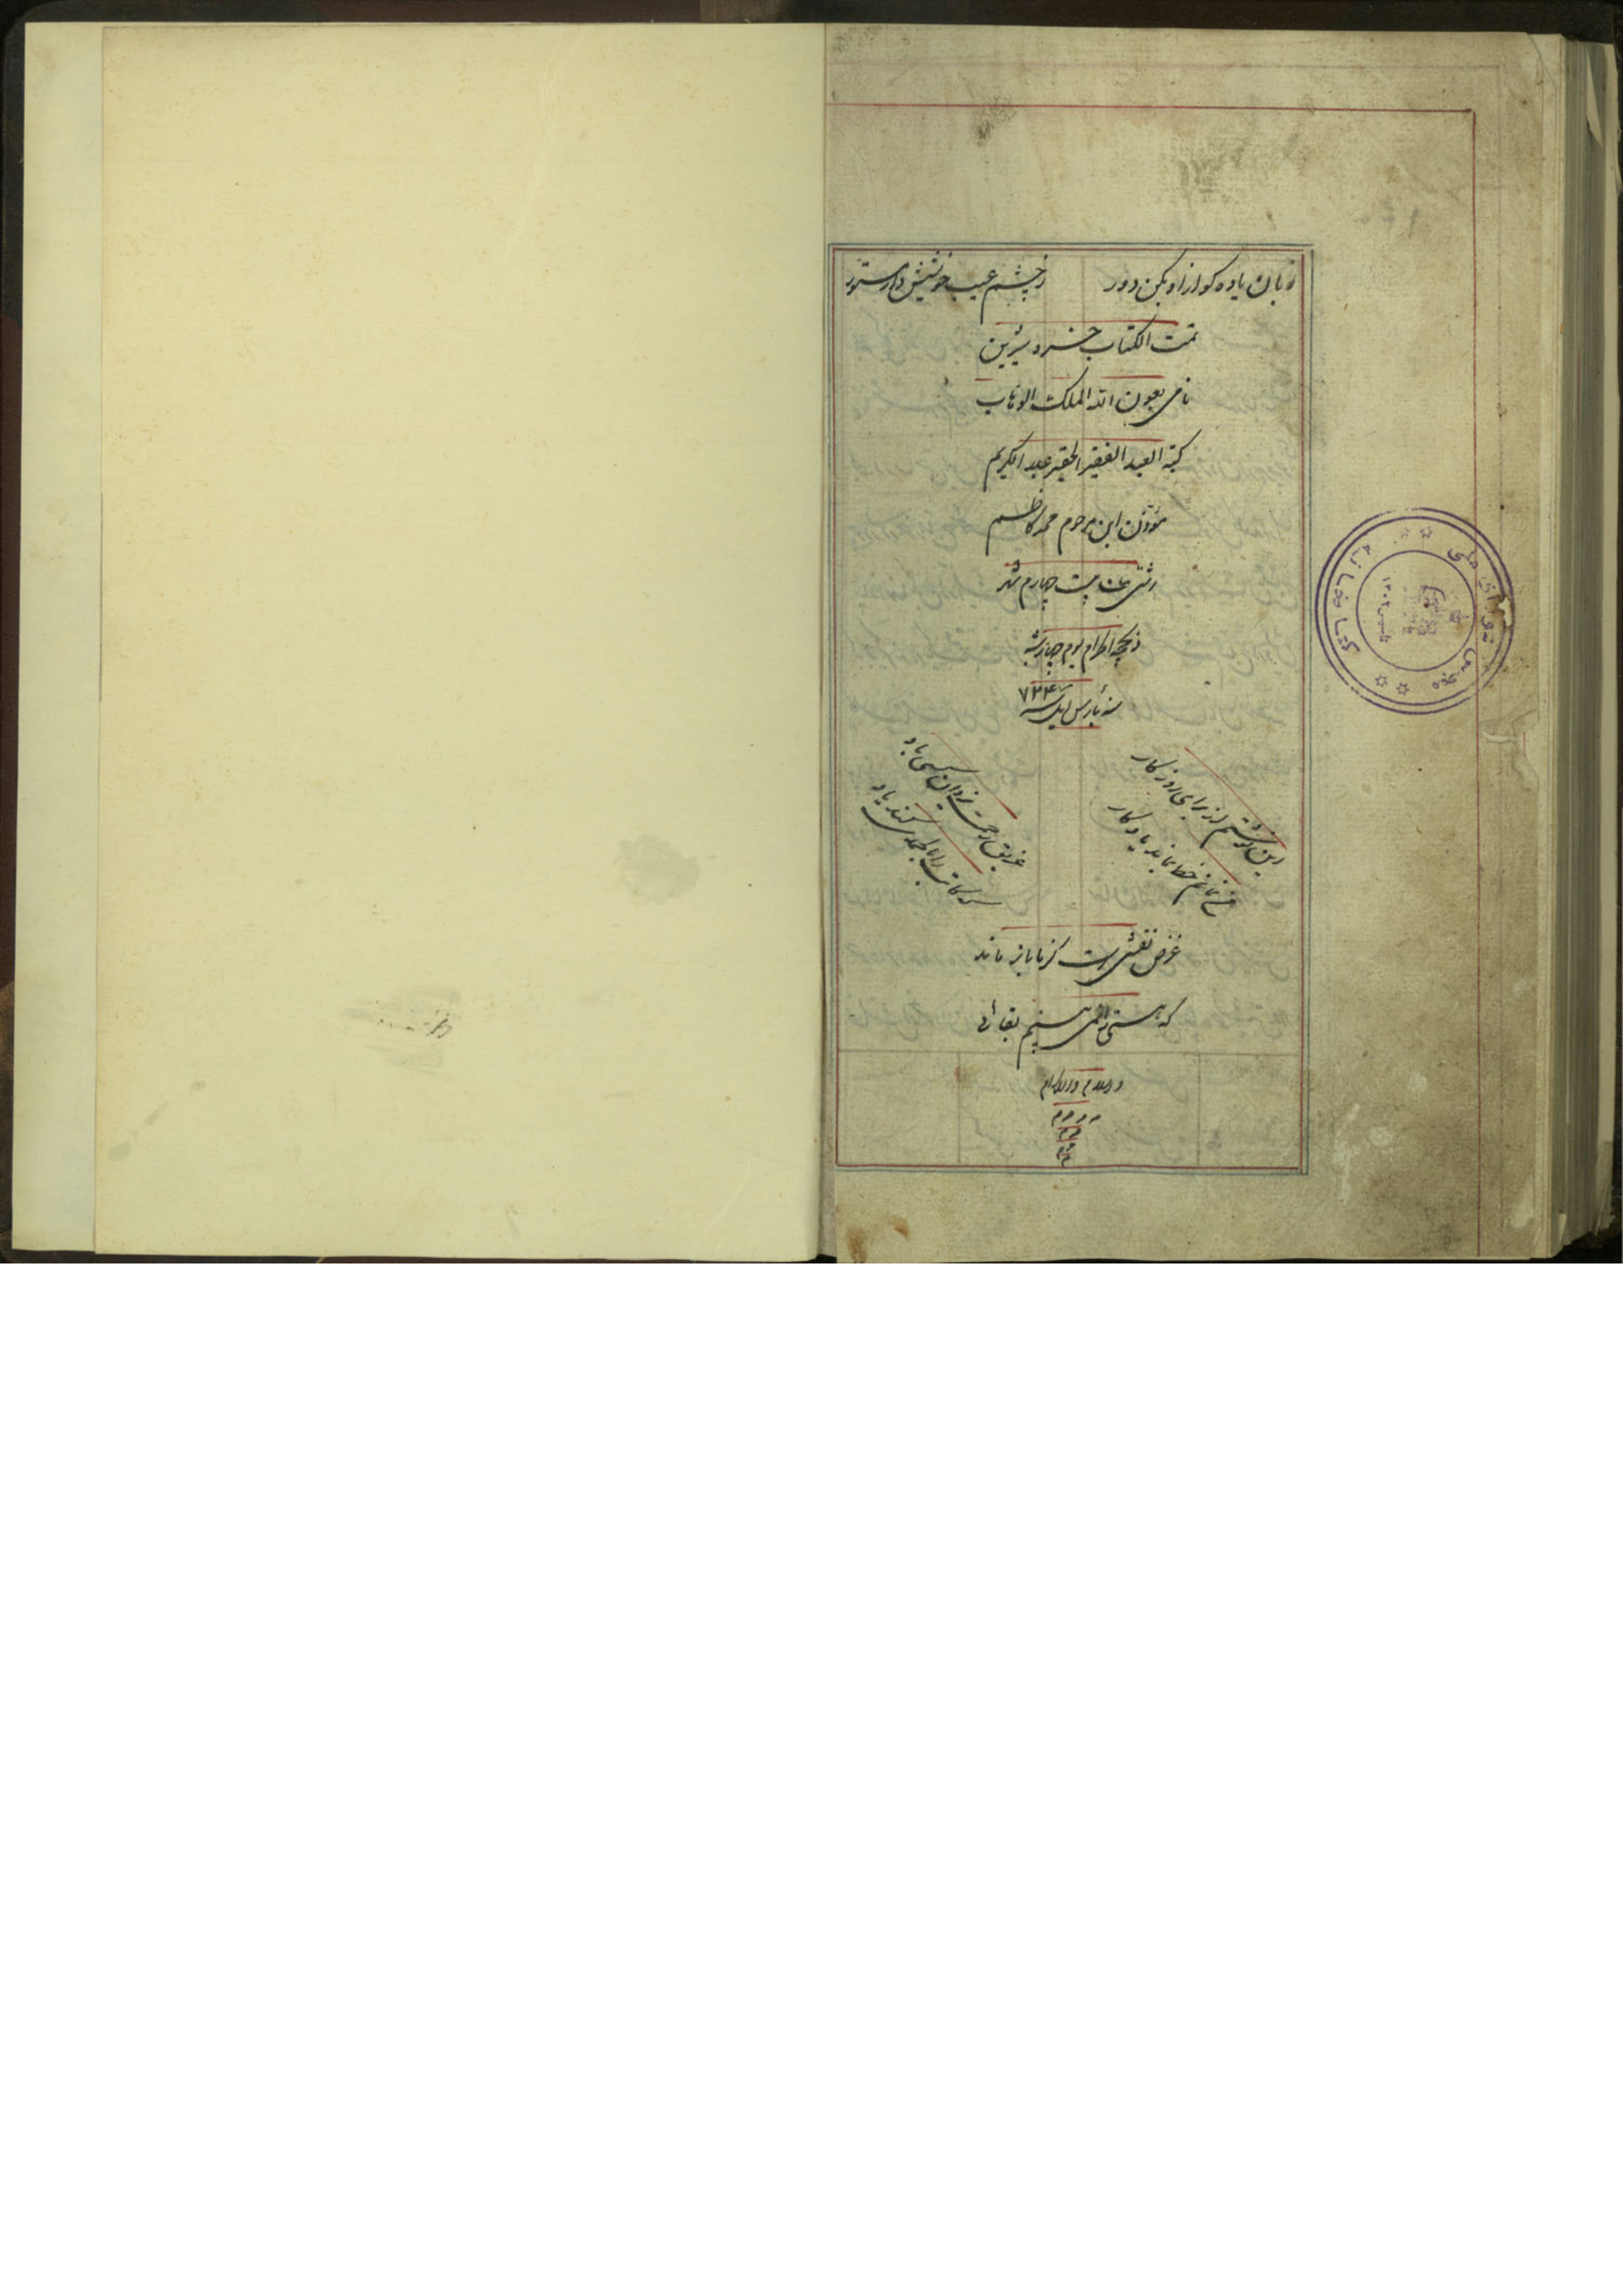 دهان یاوه کو از او بکن دور
ز چشم عیب خویش دار مستور
تمت الکتاب خسرو شیرین
نامی بعون الله الملک الوهاب
کتبه العبد الفقیر الحقیر عبد الکریم
مؤذن ابن مرحوم محمد کاظم
رشتی بیست چهارم شهر
ذیحجه الحرام یوم چهارشنبه
سنه بارس ئیل سنه
این نوشتم از برای روزکار
من نمانم خط بماند یادکار
غریق رحمت یزدان کسی باد
که کاتب را بالحمدی کند یاد
غرض نقشی است کز ما باز ماند
که هستی را نمی بینم بقائی
والسلام والاکرام